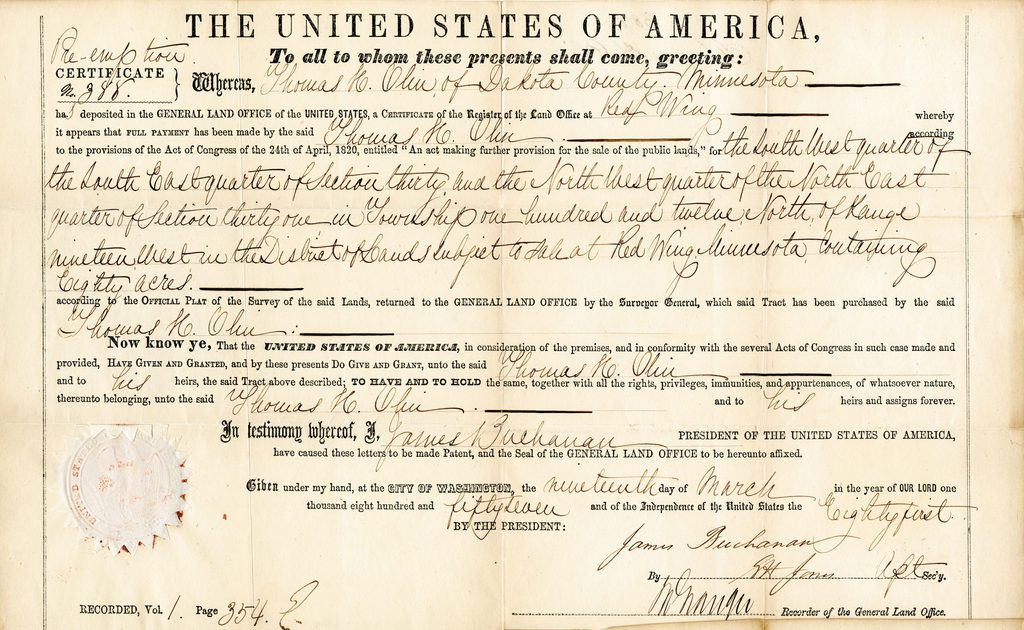 THE UNITED STATES OF AMERICA,
Pre-emption
To all to whom these presents shall come, greeting:
CERTIFICATE
No. 388.
Whereas, Thomas H. Olin of Dakota County Minnesota
has deposited in the GENERAL LAND OFFICE of the UNITED STATES, a CERTIFICATE of the Register of the Land Office at Red Wing whereby
it appears that FULL PAYMENT has been made by the said Thomas H. Olin according
to the provisions of the Act of Congress of the 24th of April, 1820, entitled "An act making further provision for the sale of the public lands," for the South West quarter of
the South East quarter of Section thirty, and the North West quarter of the North East
quarter of Section thirty one in Township one hundred and twelve North, of Range
nineteen West in the District of Lands subject to sale at Red Wing Minnesota, Containing
Eighty acres.
according to the OFFICIAL PLAT of the Survey of the said Lands, returned to the GENERAL LAND OFFICE by the Surveyor General, which said Tract has been purchased by the said
Thomas H. Olin :
Now know ye, That the UNITED STATES OF AMERICA, in consideration of the premises, and in conformity with the several Acts of Congress in such case made and
provided, HAVE GIVEN AND GRANTED, and by these presents DO GIVE AND GRANT, unto the said Thomas H. Olin
and to his heirs, the said Tract above described; TO HAVE AND TO HOLD the same, together with all the rights, privileges, immunities, and appurtenances, of whatsoever nature,
thereunto belonging, unto the said Thomas H. Olin and to his heirs and assigns forever.
In testimony whereof, I, James Buchanan PRESIDENT OF THE UNITED STATES OF AMERICA,
have caused these letters to be made Patent, and the Seal of the GENERAL LAND OFFICE to be hereunto affixed.
Given under my hand, at the CITY OF WASHINGTON, the nineteenth day of March in the year of OUR LORD one
thousand eight hundred and fifty seven and of the Independence of the United States the Eighty first
BY THE PRESIDENT:
James Buchanan
By Sec'y.
Recorder of the General Land Office.
RECORDED, Vol. 1. Page 354.
UNITED STA